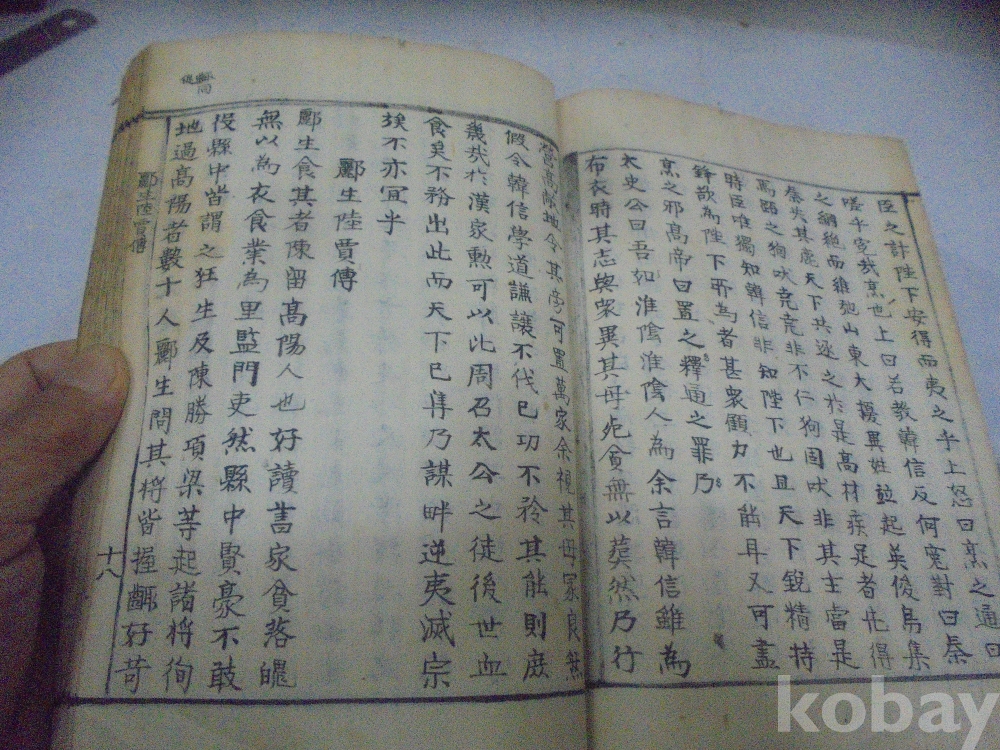 臣之計陛下安得而夷之乎上怒曰烹之通曰
嗟乎寃哉烹也上曰若教韓信反何寃對曰秦
之綱絶而維弛山東大擾異姓並起英俊烏集
秦失其鹿天下共逐之於是高材疾足者先得
焉蹠之狗吠堯堯非不仁狗固吠非其主當是
時臣唯獨知韓信非知陛下也且天下銳精持
鋒欲為陛下所為者甚衆顧力不能耳又可盡
烹之邪高帝曰置之釋通之罪乃
太史公曰吾如淮陰淮陰人為余言韓信雖為
布衣時其志與衆異其母死貧無以葬然乃行
營高敞地令其旁可置萬家余視其母冢良然
假令韓信學道謙讓不伐已功不矜其能則庶
幾哉於漢家勲可以比周召太公之徒後世血
食矣不務出此而天下已集乃謀畔逆夷滅宗
族不亦宜乎
酈生陸賈傳
酈生食其者陳留高陽人也好讀書家貧落魄
無以為衣食業為里監門吏然縣中賢豪不敢
役縣中皆謂之狂生及陳勝項梁等起諸將徇
地過高陽者數十人酈生問其將皆握齱好苛
酈生陸賈傳
十八
kobay